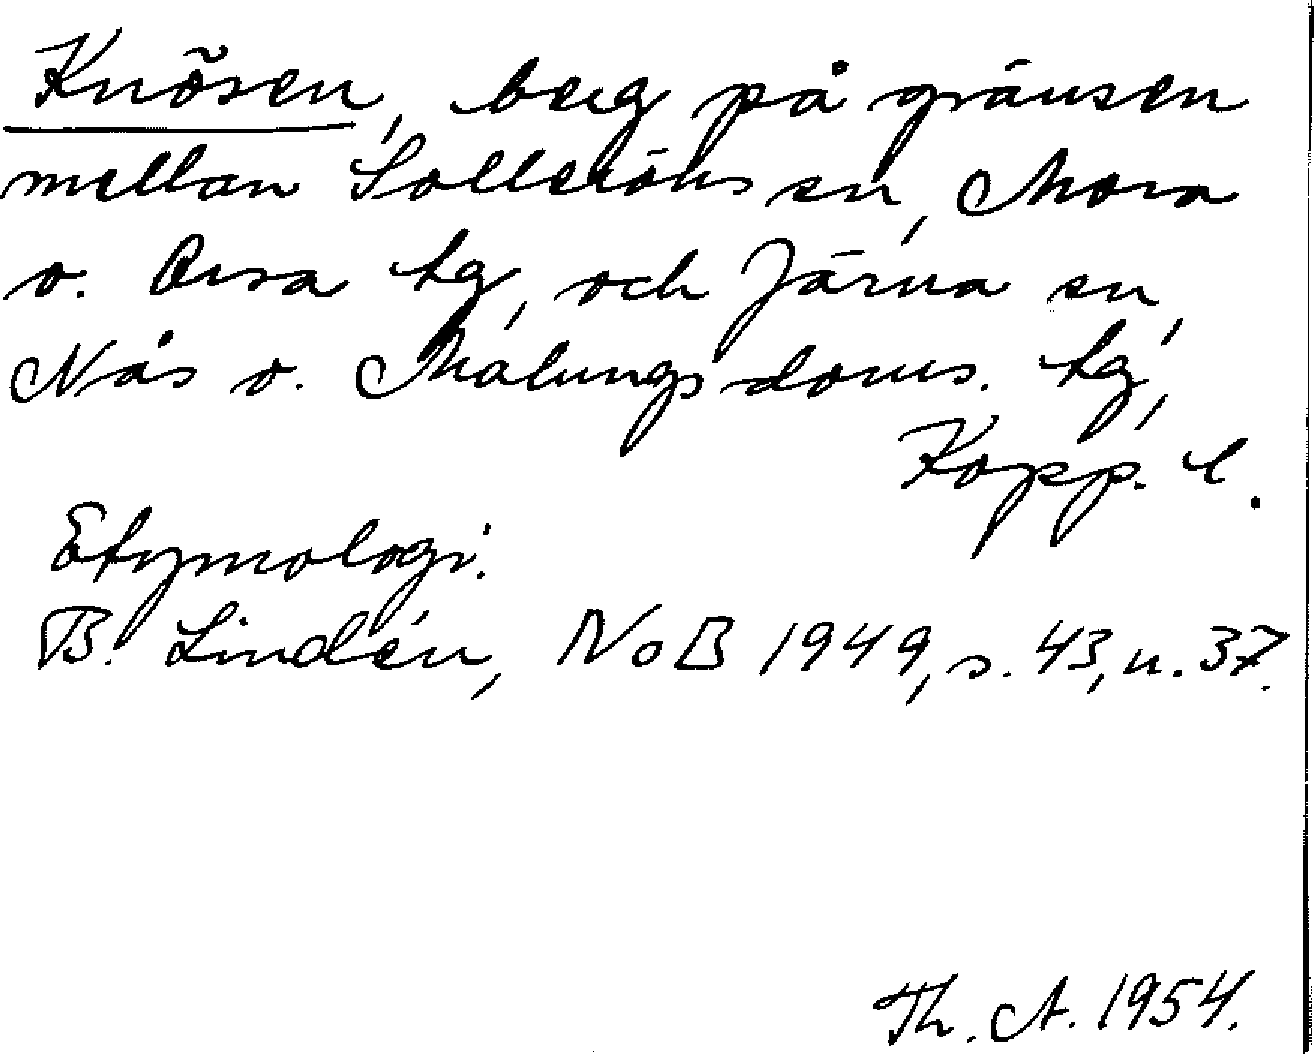 Knösen, berg på gränsen
mellan Solleröns sn, Mora
o. Orsa tg, och Järna sn,
Nås o. Malungs doms. tg,
Kopp. l.
Etymologi.
B. Lindén, NoB 1949, s. 43, n. 37.
Th. A. 1954.